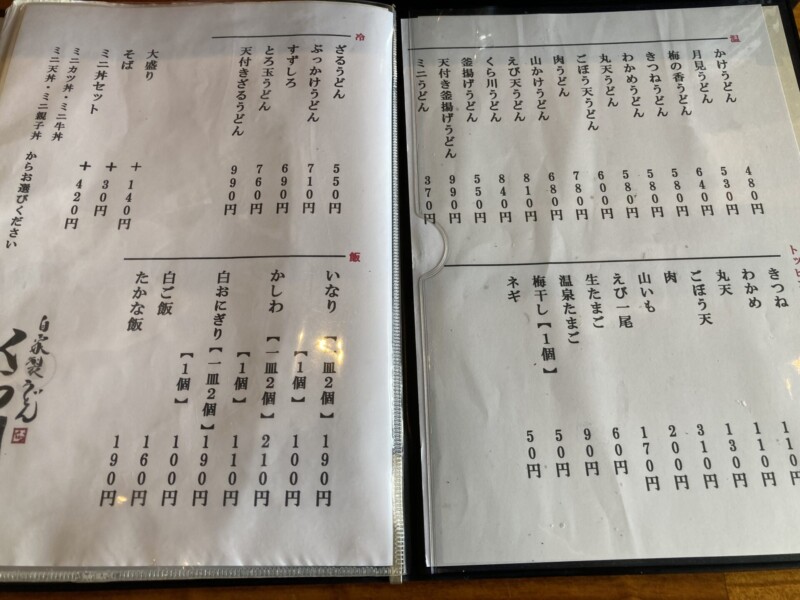 温
かけうどん 480円
月見うどん 530円
梅の香うどん 640円
きつねうどん 580円
わかめうどん 580円
丸天うどん 580円
ごぼう天うどん 600円
肉うどん 780円
山かけうどん 680円
えび天うどん 810円
くら川うどん 840円
釜揚げうどん 550円
天付き釜揚げうどん 990円
ミニうどん 370円
きつね
わかめ 110円
丸天 110円
ごぼう天 130円
肉 310円
山いも 200円
えび一尾 170円
生たまご 60円
温泉たまご 90円
梅干し【1個】 50円
ネギ 50円
冷
ざるうどん 550円
ぶっかけうどん 710円
すずしろ 690円
とろ玉うどん 760円
天付きざるうどん 990円
大盛り +140円
そば +30円
ミニ丼セット +420円
ミニカツ丼・ミニ牛丼
ミニ天丼・ミニ親子丼 からお選びください
飯
いなり【一皿2個】 190円
【1個】 100円
かしわ【一皿2個】 210円
【1個】 110円
白おにぎり【一皿2個】 190円
【1個】 100円
白ご飯 160円
たかな飯 190円
自家製うどん